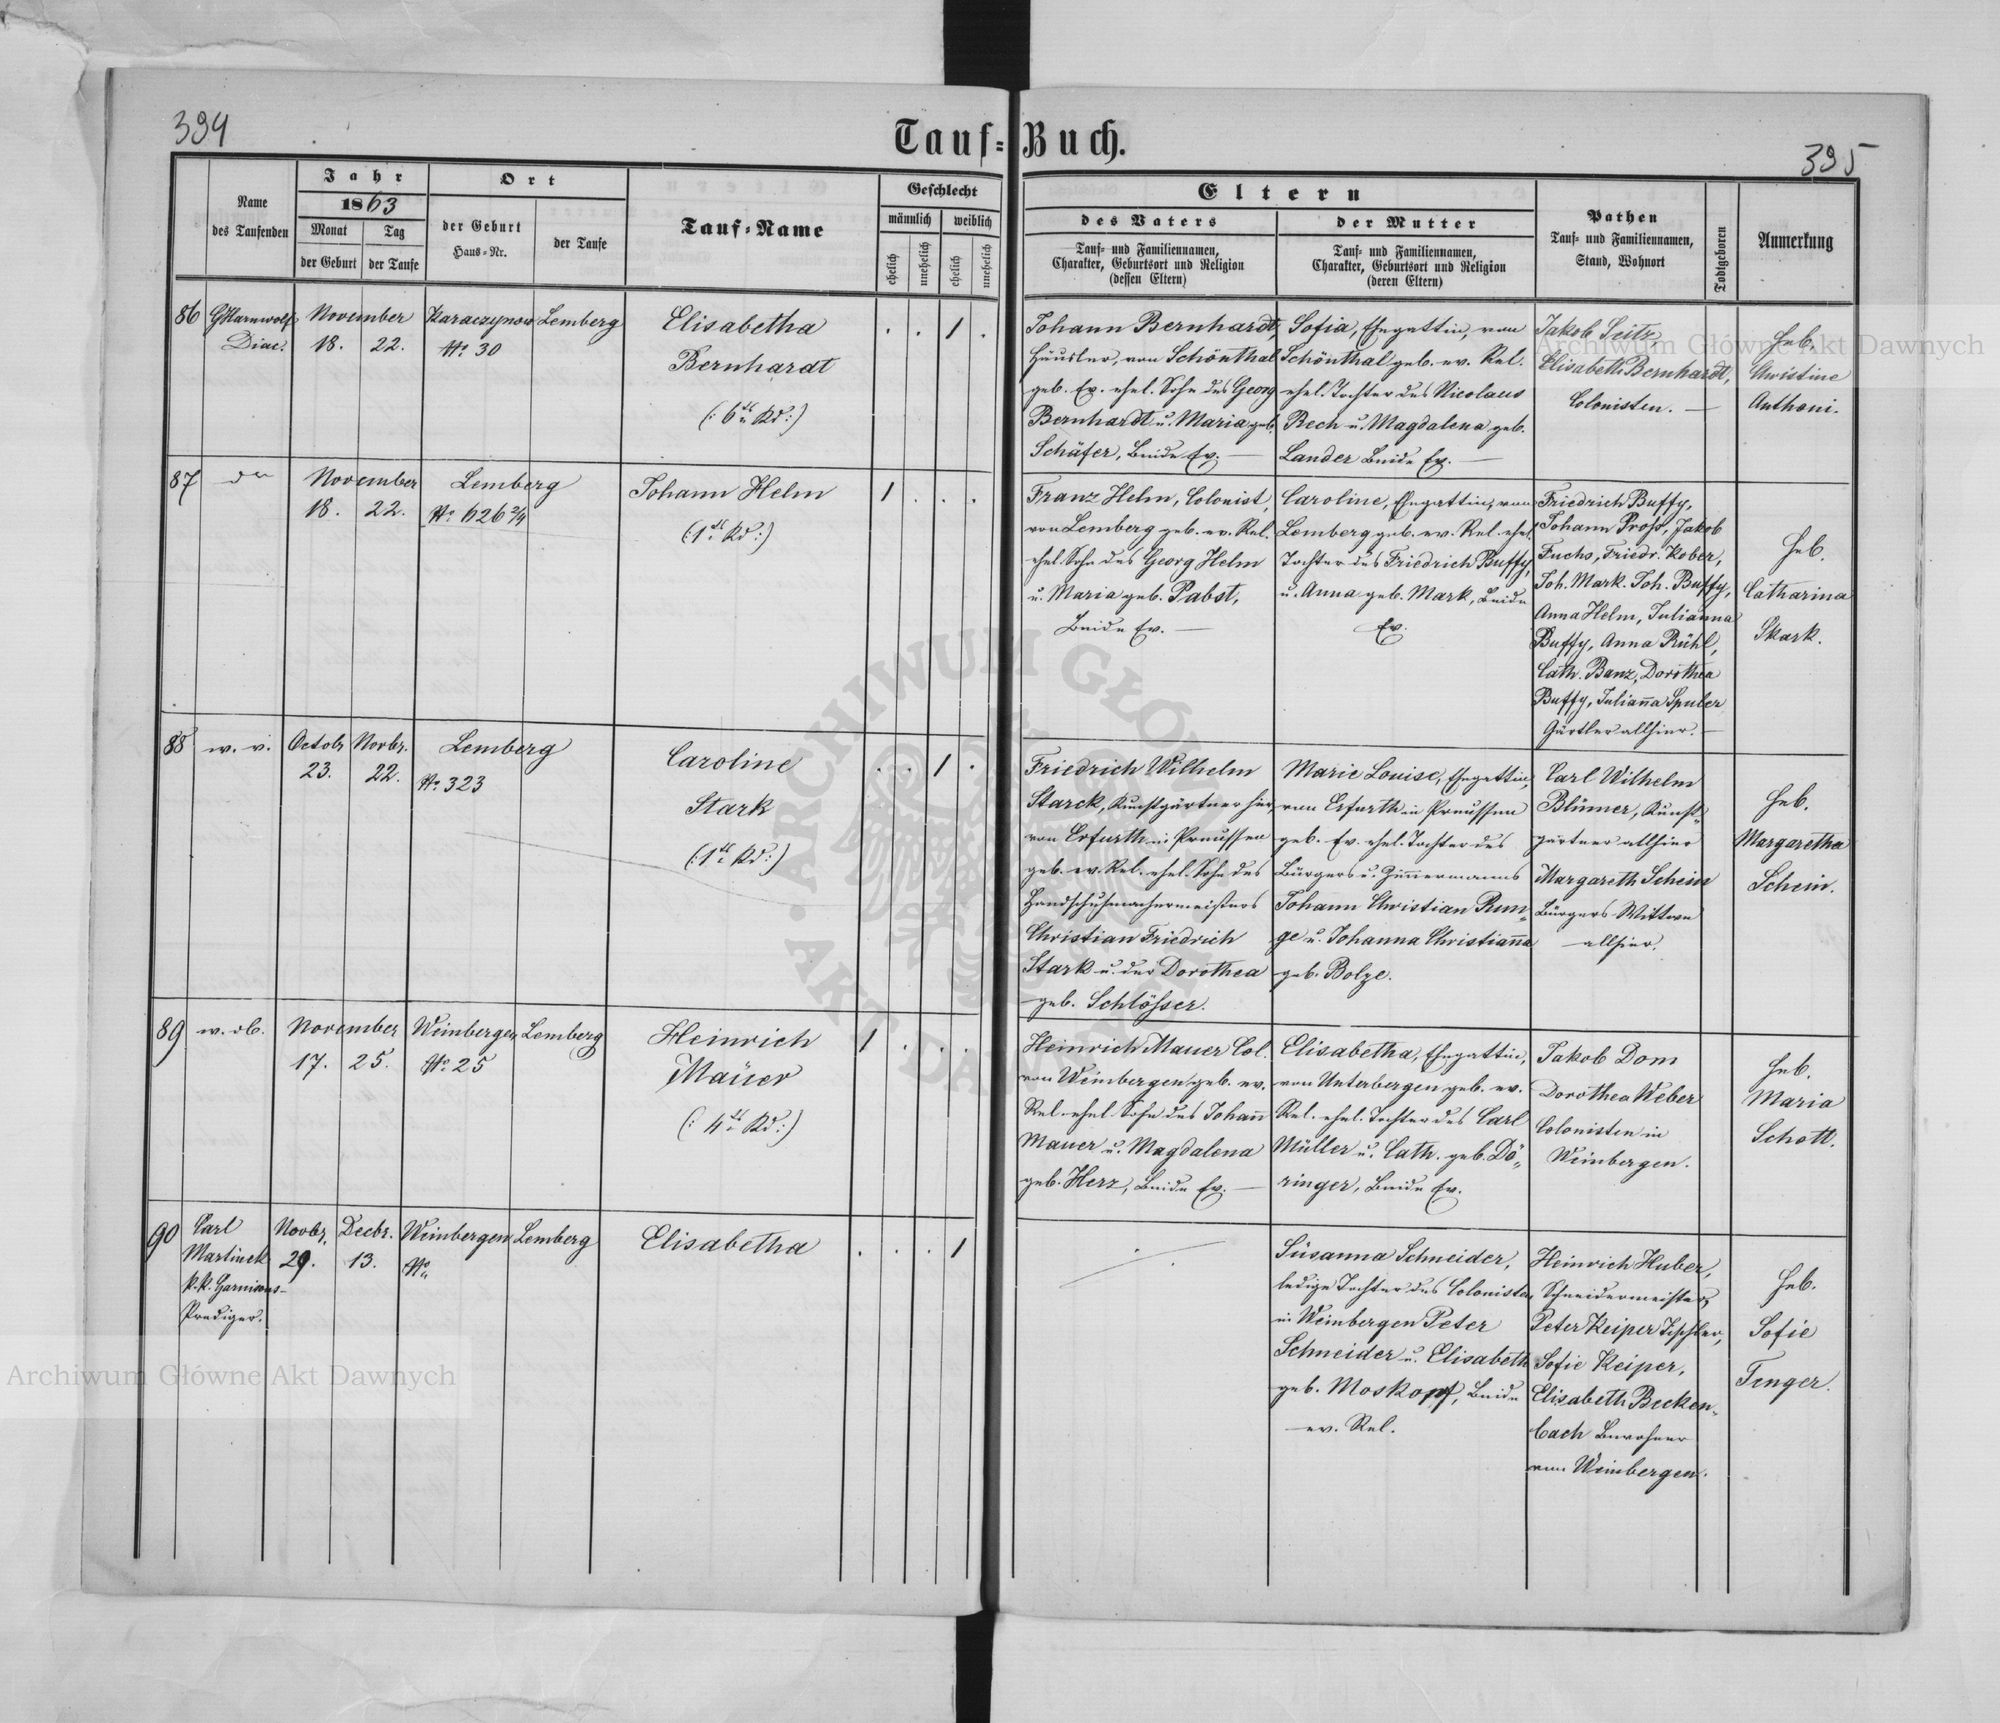 394
Tauf-Buch.
395
Name
des Taufenden
Jahr
1863
Monat
der Geburt
Tag
der Taufe
Ort
der Geburt
Haus-Nr.
der Taufe
Tauf-Name
Geschlecht
männlich
weiblich
ehelich
unehelich
ehelich
unehelich
Eltern
des Vaters
Tauf- und Familiennamen,
Charakter, Geburtsort und Religion
(dessen Eltern)
der Mutter
Tauf- und Familiennamen,
Charakter, Geburtsort und Religion
(deren Eltern)
Pathen
Tauf- und Familiennamen,
Stand, Wohnort
Todtgeboren
Anmerkung
86
Diac.
November
18. 22.
Karaczynow
No 30
Lemberg
Elisabetha
Bernhardt
(: 6te Kd :)
1
Johann Bernhardt,
Häusler, von Schönthal
geb. Ev. ehel. Sohn des Georg
Bernhardt u. Maria geb.
Schäfer, beide Ev. —
Sofia, Ehegattin, von
Schönthal geb. ev. Rel.
ehel. Tochter des Nicolaus
Rech u. Magdalena geb.
Lander beide Ev. —
Jakob Seitz,
Elisabeth Bernhardt,
Colonisten. —
Heb.
Christine
Anthoni.
87
November
18. 22.
Lemberg
No 626 2/4
Johann Helm
(: 1te Kd :)
1
Franz Helm, Colonist,
von Lemberg geb. ev. Rel.
ehel. Sohn des Georg Helm
u. Maria geb. Pabst,
beide Ev. —
Caroline, Ehegattin, von
Lemberg geb. ev. Rel. ehel.
Tochter des Friedrich Buffy,
u. Anna geb. Mark, beide
Ev.
Friedrich Buffy,
Johann Proß, Jakob
Fuchs, Friedr. Kober,
Joh. Mark. Joh. Buffy,
Anna Helm, Julianna
Buffy, Anna Rühl,
Cath. Banz, Dorothea
Buffy, Julianna Spuler
Gärtler allhier. —
Heb.
Catharina
Skark.
88
w. v.
Octobr Novbr.
23. 22.
Lemberg
No 323
Caroline
Stark
(: 1te Kd :)
1
Friedrich Wilhelm
Starck, Kunstgärtner hier,
von Erfurth in Preussen
geb. ev. Rel. ehel. Sohn des
Handschuhmachermeisters
Christian Friedrich
Stark u. der Dorothea
geb. Schlösser.
Marie Louise, Ehegattin,
von Erfurth in Preussen
geb. Ev. ehel. Tochter des
Bürgers u. Zimmermanns
Johann Christian Run-
ge u. Johanna Christianna
geb. Bolze.
Carl Wilhelm
Blümer, Kunst-
gärtner allhier
Margareth Schein
Bürgers-Wittwe
allhier.
Heb.
Margaretha
Schein.
89
w. ob.
November
17. 25.
Weinbergen
No 25
Lemberg
Heinrich
Maüer
(: 4te Kd :)
1
Heinrich Mauer Col.
von Weinbergen geb. ev.
Rel. ehel. Sohn des Johann
Mauer u. Magdalena
geb. Herz, beide Ev. —
Elisabetha, Ehegattin,
von Unterbergen geb. ev.
Rel. ehel. Tochter des Carl
Müller u. Cath. geb. Dö-
ringer, beide Ev.
Jakob Dom
Dorothea Weber
Colonisten in
Weinbergen.
Heb.
Maria
Schott.
90
Carl
Martinek
k. k. Garnisons-
Prediger.
Novbr. Decbr.
29. 13.
Weinbergen
No
Lemberg
Elisabetha
1
Susanna Schneider,
ledige Tochter des Colonisten
in Weinbergen Peter
Schneider u. Elisabeth
geb. Moskopf, beide
ev. Rel.
Heinrich Huber,
Schneidermeister,
Peter Keiper Tischler,
Sofie Keiper,
Elisabeth Becken-
bach Bewohner
von Weinbergen.
Heb.
Sofie
Tenger.
Archiwum Główne Akt Dawnych
Archiwum Główne Akt Dawnych